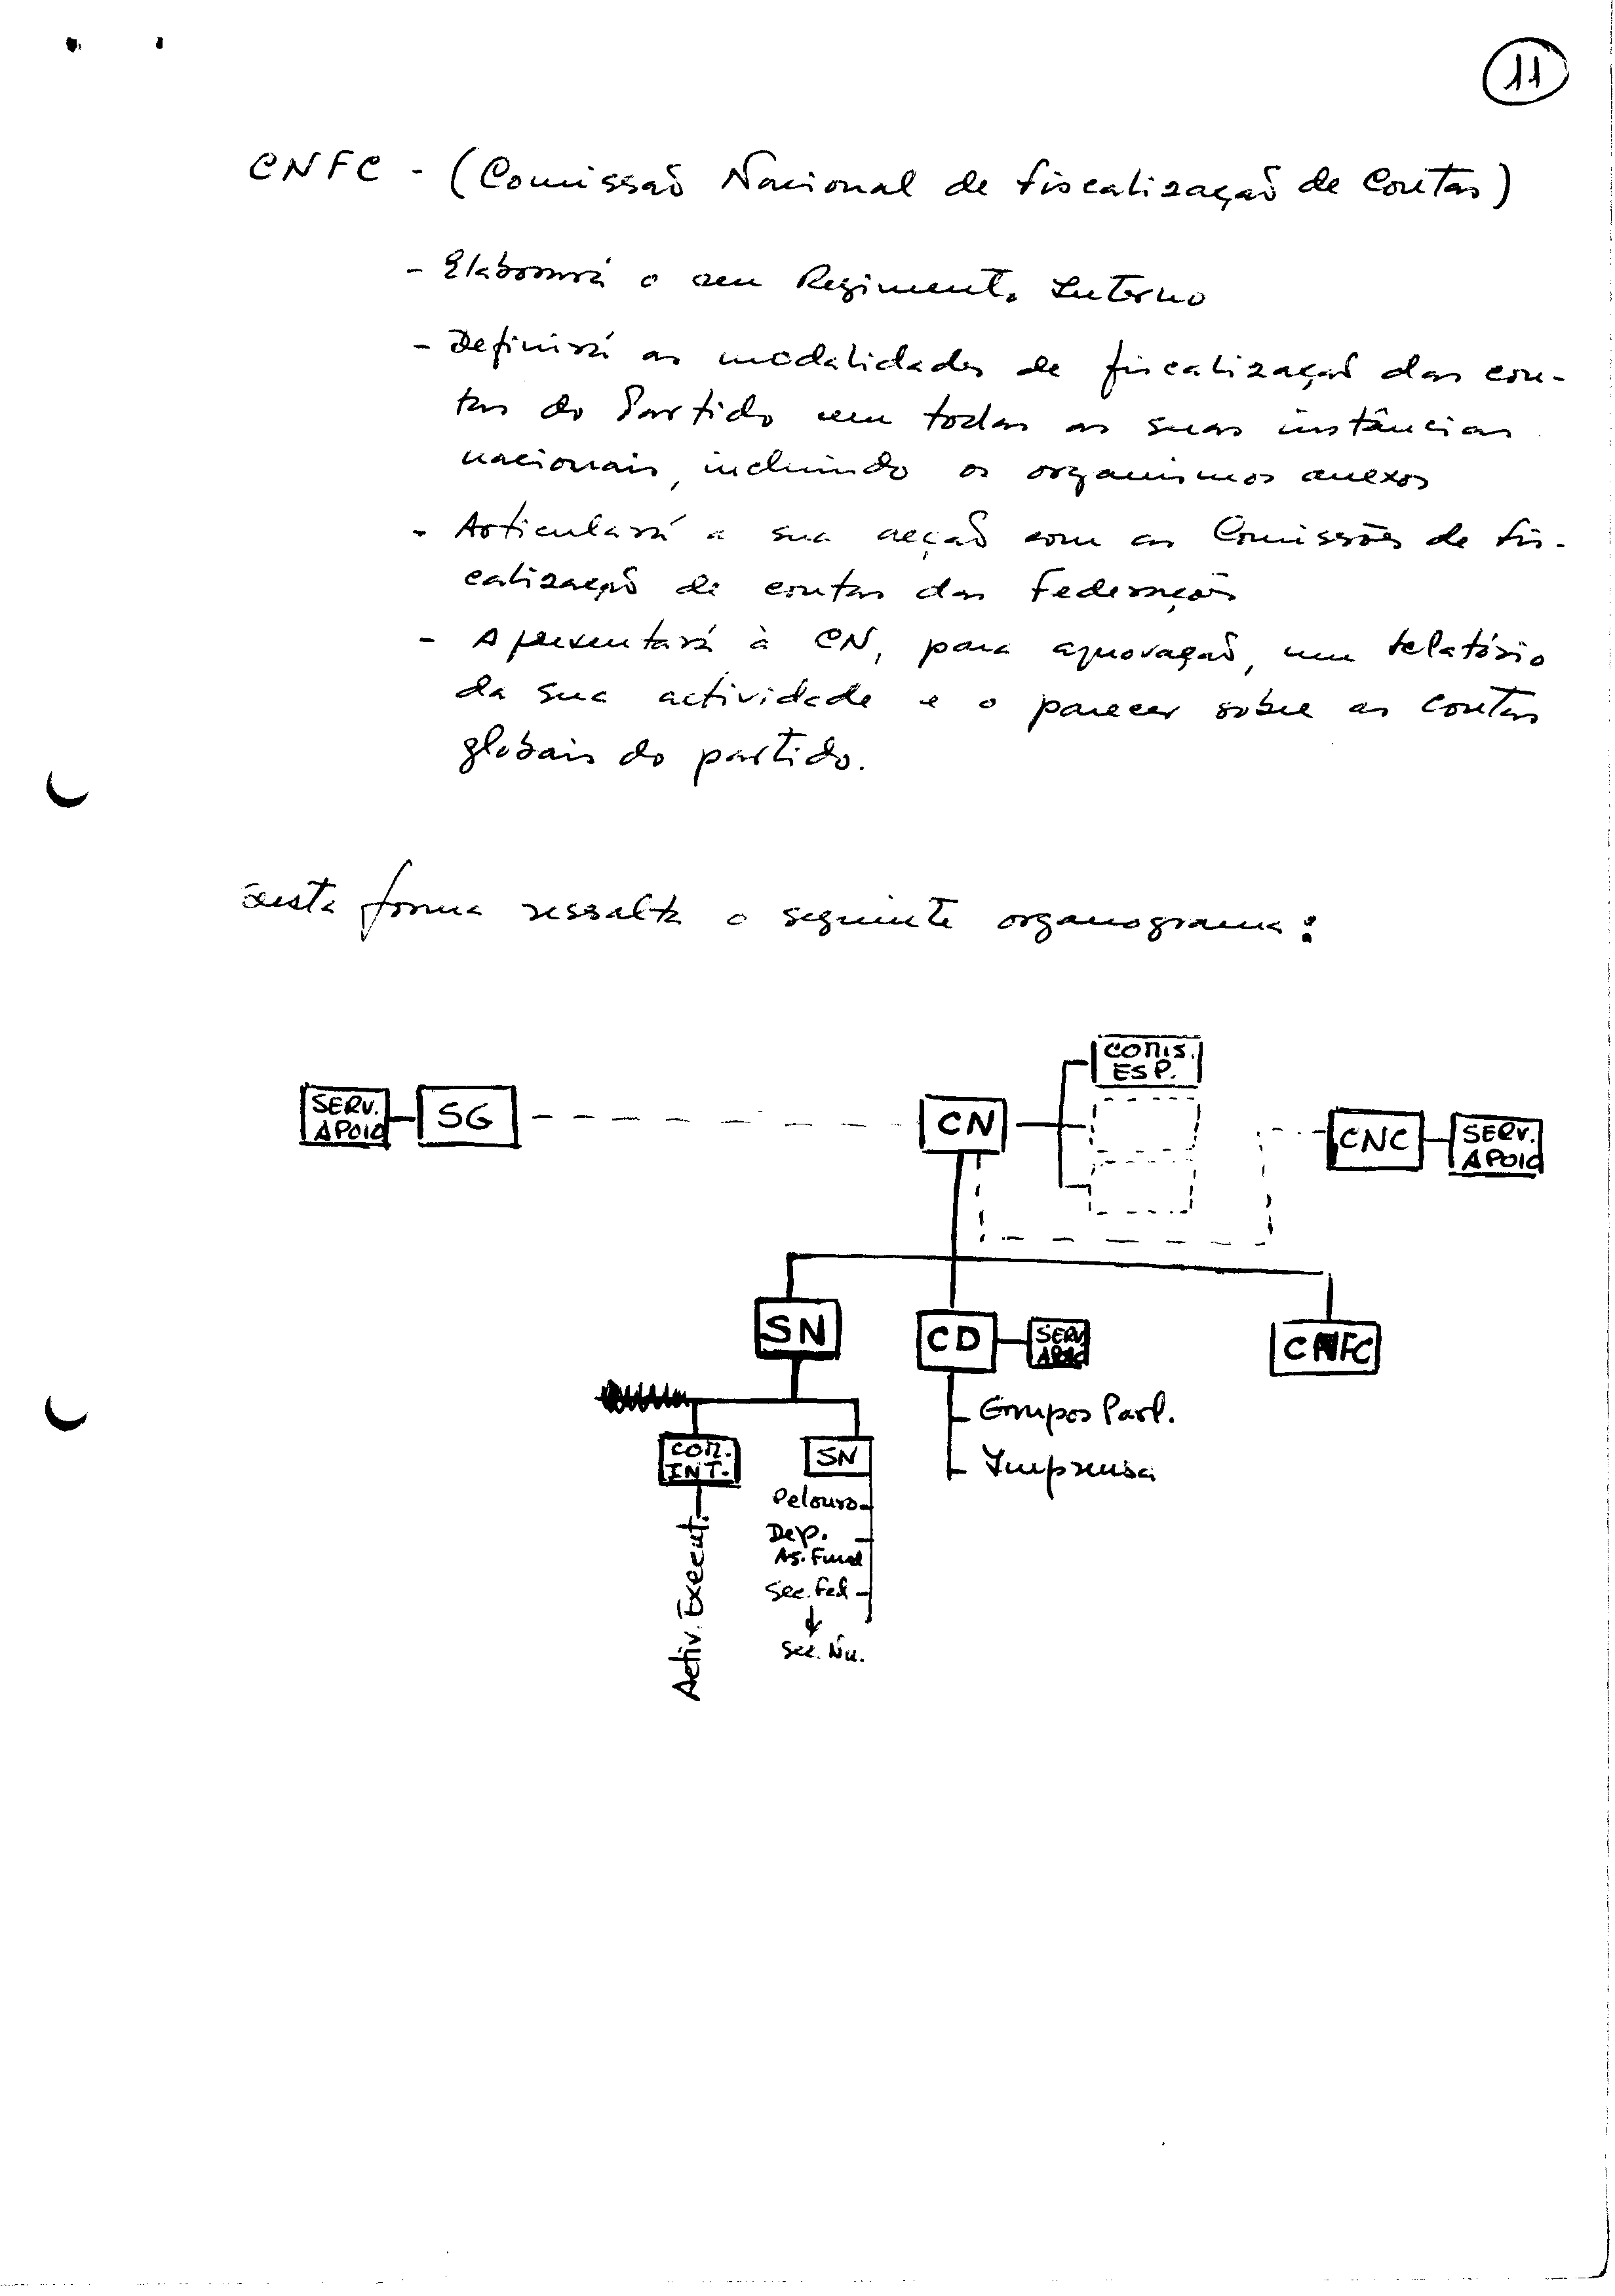 11
CNFC - (Comissão Nacional de Fiscalização de Contas)
- Elaborará o seu Regimento Interno
- Definirá as modalidades de fiscalização das con-
tas do Partido em todas as suas instâncias
nacionais, incluindo os organismos anexos
- Articulará a sua acção com as Comissões de Fis-
calização de contas das Federações
- Apresentará à CN, para aprovação, um relatório
da sua actividade e o parecer sobre as contas
globais do partido.
Desta forma ressalta o seguinte organograma:
COMIS.
ESP.
SERV.
APOIO
SG
CN
CNC
SERV.
APOIO
SN
CD
SERV.
APOIO
CNFC
Grupos Parl.
Imprensa
COM.
INT.
SN
Pelouro
Dep.
Sec. Fed
Sec. Nu.
Activ. Execut.